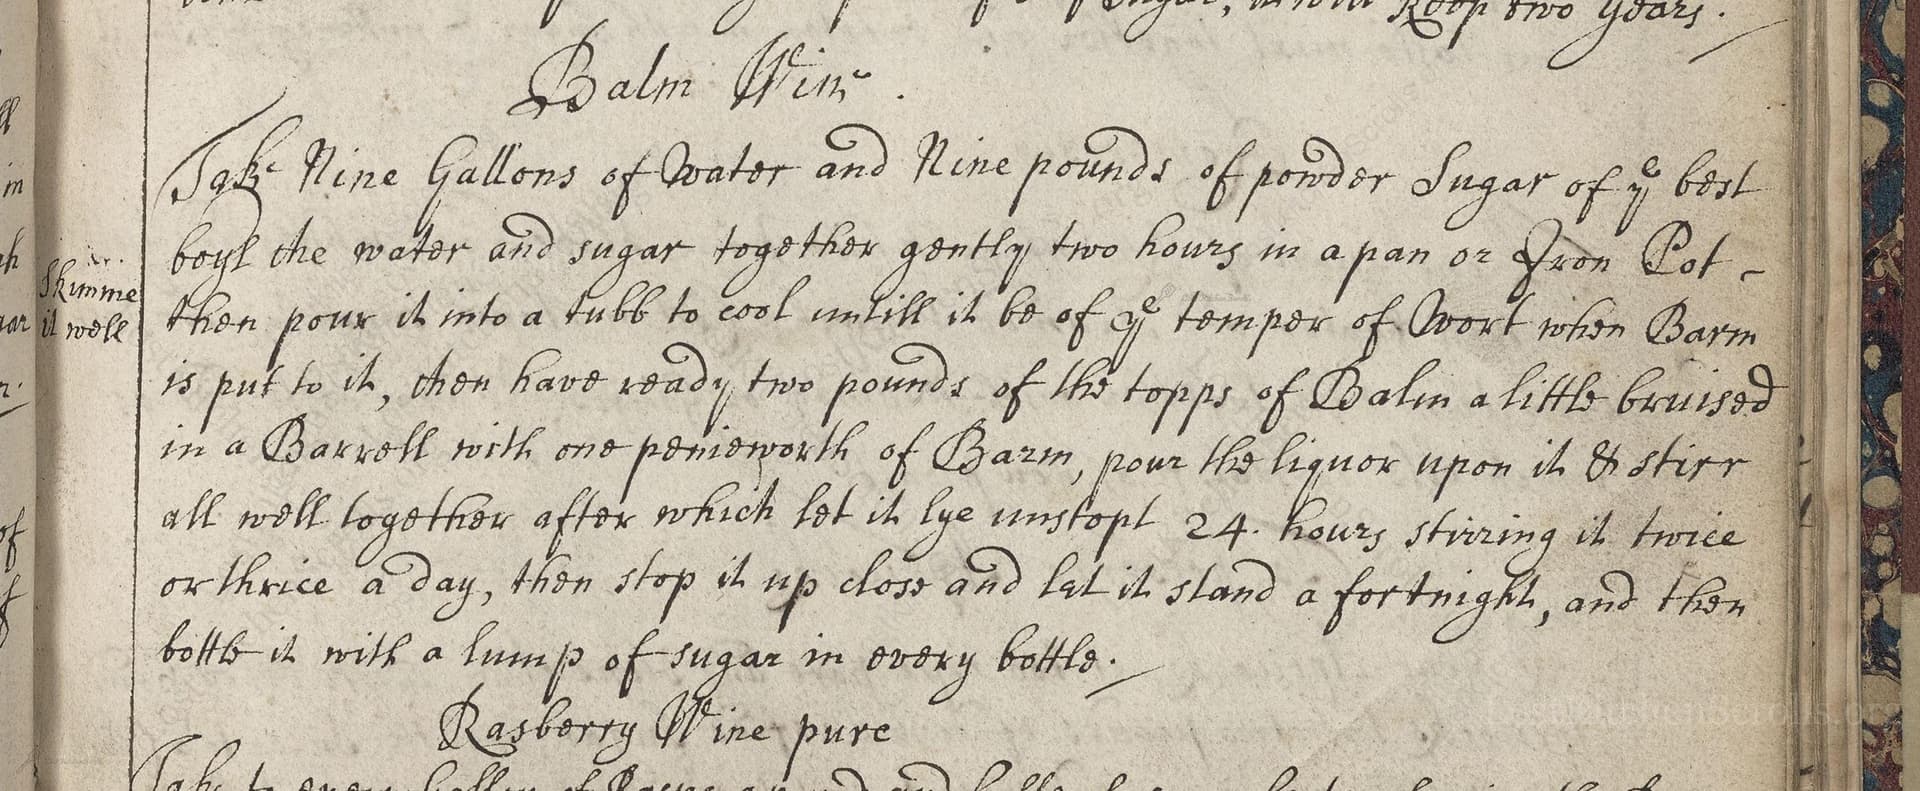 Sugar, it will Keep two years.
Balm Wine.
Take Nine Gallons of Water and Nine pounds of powder Sugar of yͤ best
boyl the water and sugar together gently two hours in a pan or Iron Pot -
Skimme
it well
then pour it into a tubb to cool untill it be of yͤ temper of Wort when Barm
is put to it, then have ready two pounds of the topps of Balm a little bruised
in a Barrell with one penieworth of Barm, pour the liquor upon it & stirr
all well together after which let it lye unstopt 24. hours stirring it twice
or thrice a day, then stop it up close and let it stand a fortnight, and then
bottle it with a lump of sugar in every bottle.
Rasberry Wine pure
Take to every Gallon of